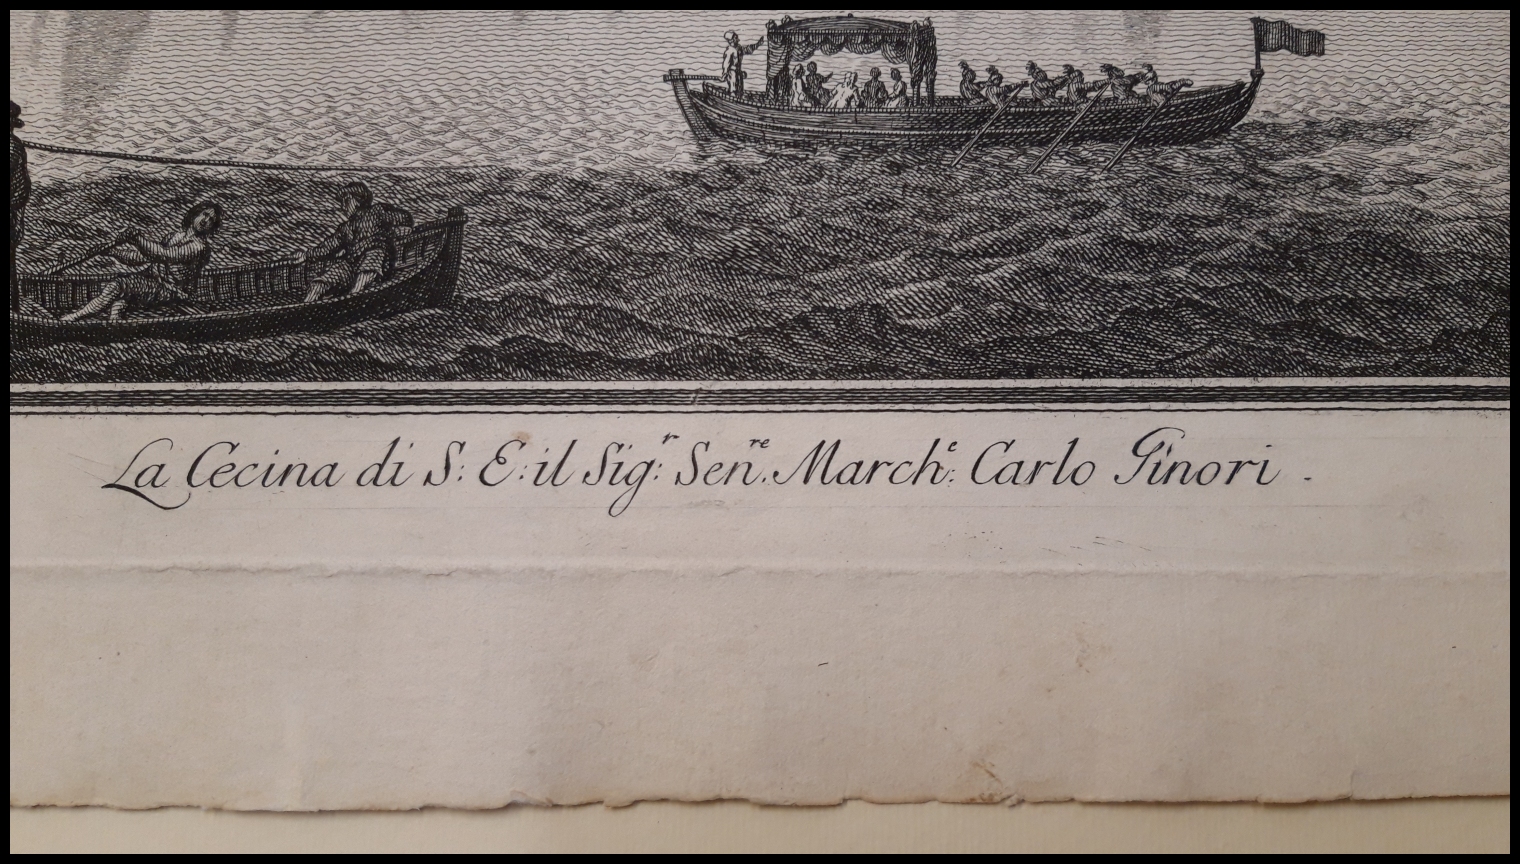 La Cecina di S: E: il Sig:r Sen.re March:e Carlo Ginori .